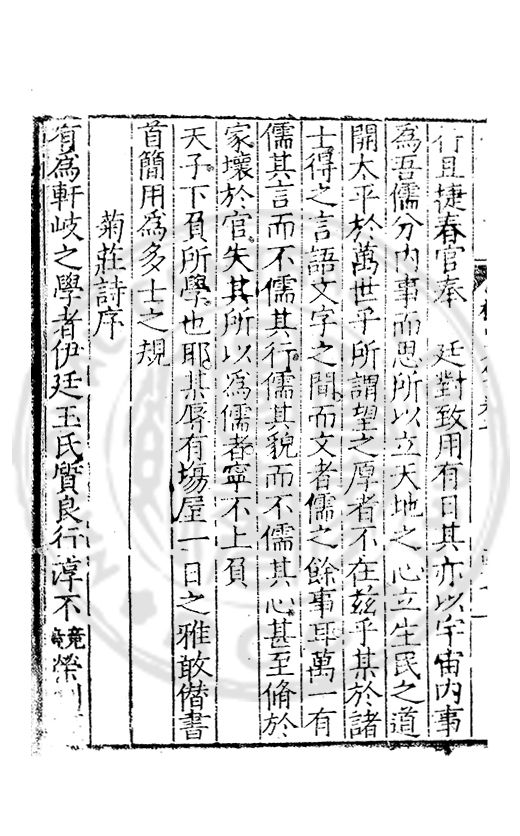 行且捷春官奉　廷對致用有日其亦以宇宙内事
為吾儒分内事而思所以立天地之心立生民之道
開太平於萬世乎所謂望之厚者不在兹乎某於諸
士得之言語文字之間而文者儒之餘事耳萬一有
儒其言而不儒其行儒其貌而不儒其心甚至脩於
家壞於官失其所以為儒者寧不上負
天子下負所學也耶某辱有場屋一日之雅敢僭書
首簡用為多士之規
菊莊詩序
有為軒岐之學者伊廷玉氏質良行淳不競榮